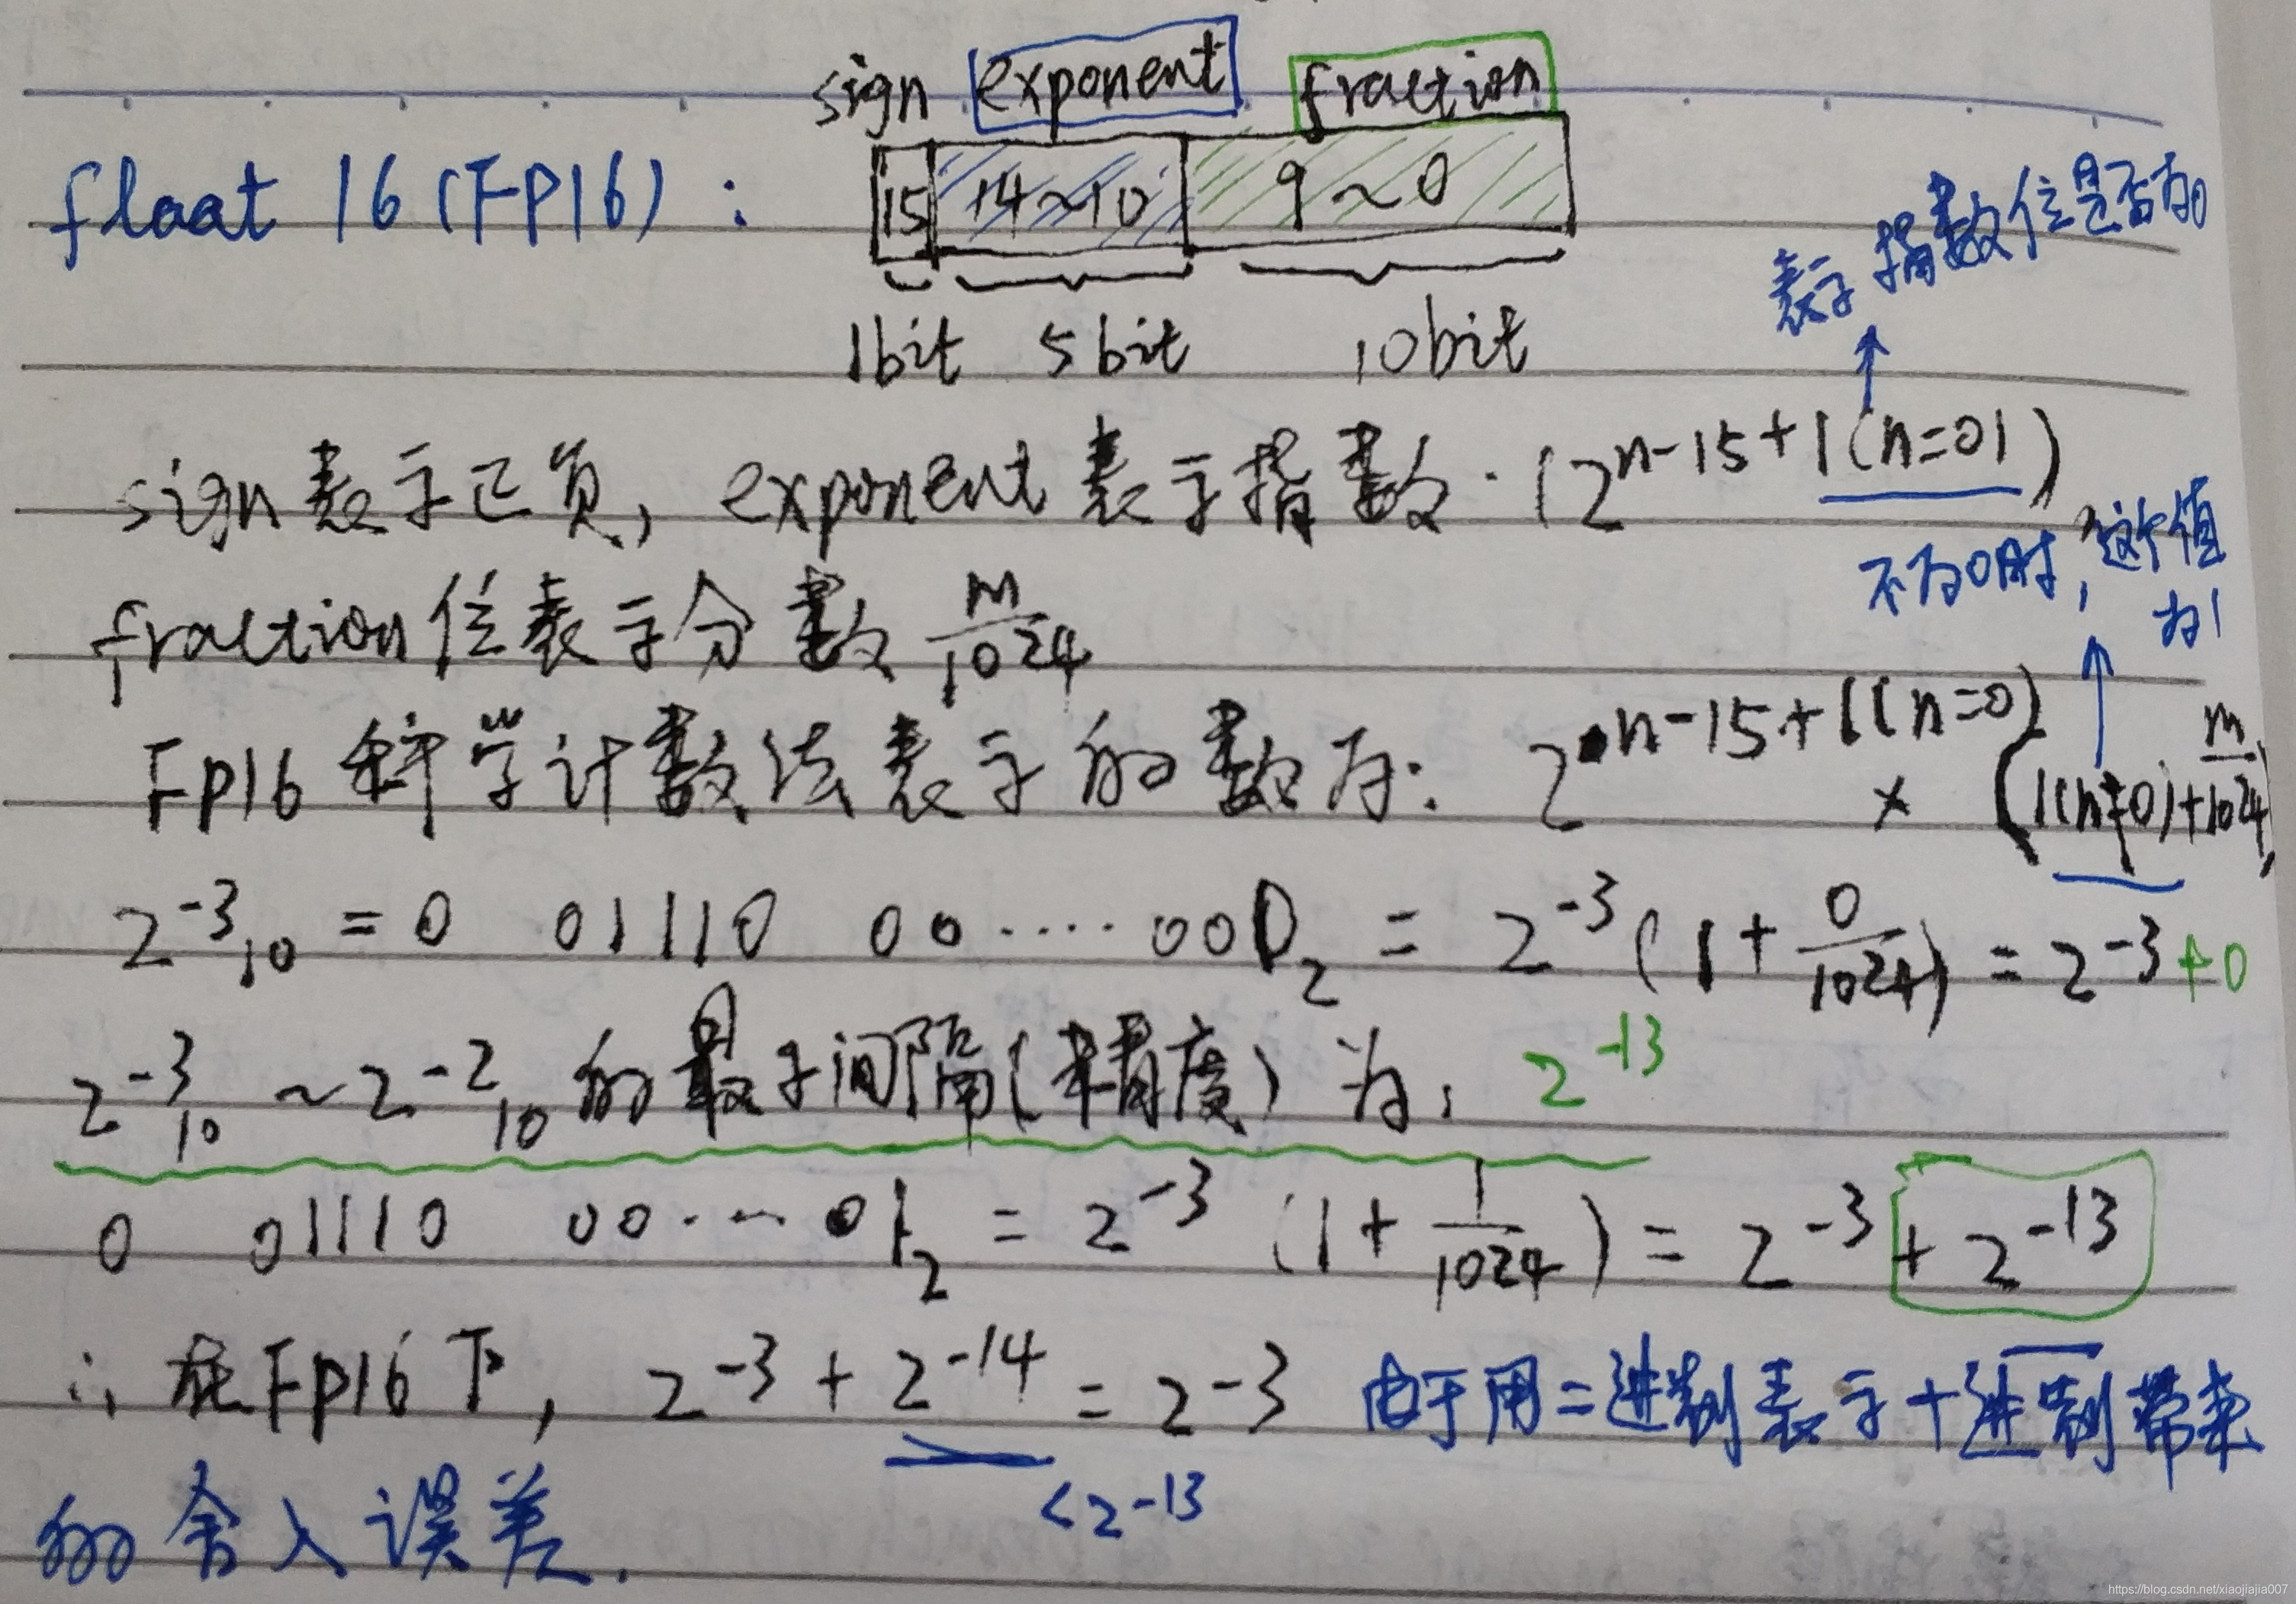 sign exponent fraction
float 16 (FP16) : 15 14~10 9~0
表示指数位是否为0
1bit 5bit 10bit
sign表示正负, exponent表示指数. (2^{n-15+1(n=0)})
不为0时, 这个值为1
fraction位表示分数 \frac{m}{1024}
FP16科学计数法表示的数为: 2^{n-15+1(n=0)} × (1(n≠0)+\frac{m}{1024})
2^{-3}_{10} = 0 01110 00····000_2 = 2^{-3} (1+\frac{0}{1024}) = 2^{-3} +0
2^{-3}_{10} ~ 2^{-2}_{10} 的最子间隔(精度)为: 2^{-13}
0 01110 00····01_2 = 2^{-3} (1+\frac{1}{1024}) = 2^{-3} + 2^{-13}
∴ 在FP16下, 2^{-3} + 2^{-14} = 2^{-3} 由于用二进制表示十进制带来
<2^{-13}
的舍入误差.
https://blog.csdn.net/xiaojiajia007